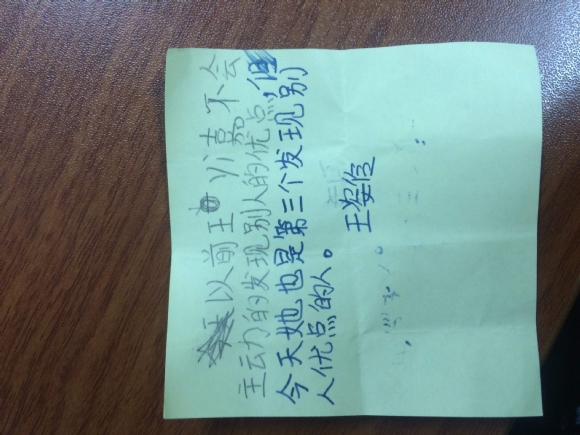 以前王 yi嘉不会
主动的发现别人的优点,但
今天她也是第三个发现别
人优点的人。
王姿